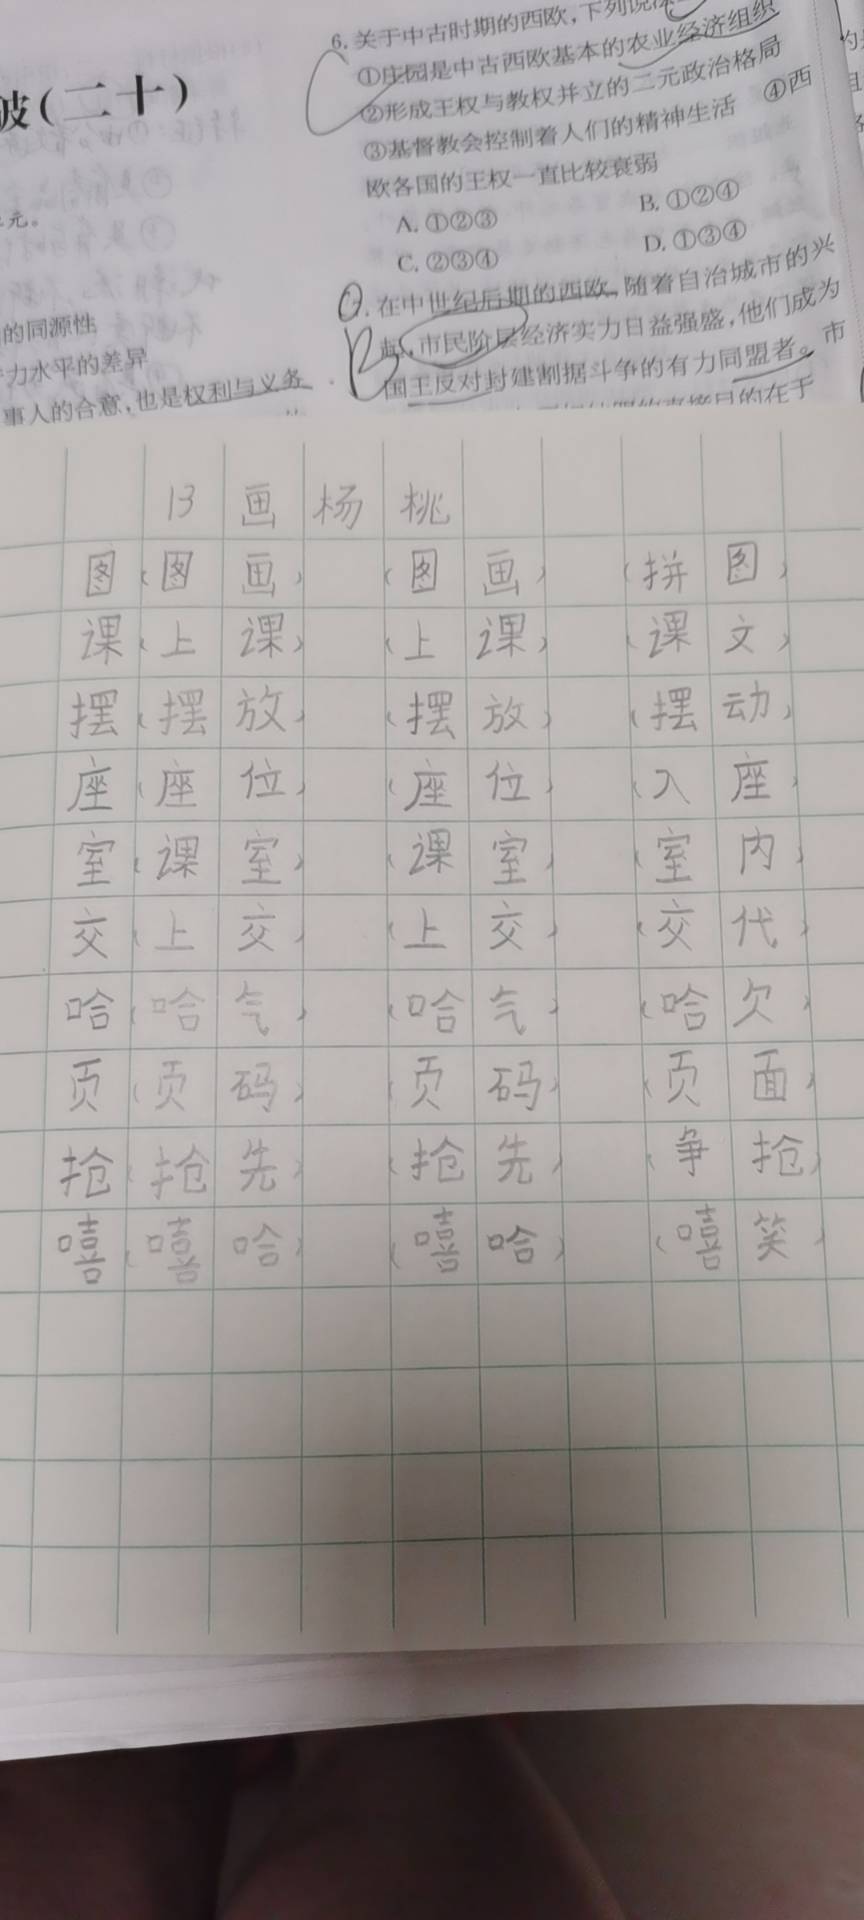 波(二十)
元。
的同源性
力水平的差异
事人的合意,也是权利与义务
6.关于中古时期的西欧,下列说法
①庄园是中古西欧基本的农业经济组织
②形成王权与教权并立的二元政治格局
③基督教会控制着人们的精神生活 ④西
欧各国的王权一直比较衰弱
A.①②③ B.①②④
C.②③④ D.①③④
7.在中世纪后期的西欧,随着自治城市的兴
起,市民阶层经济实力日益强盛,他们成为
国王反对封建割据斗争的有力同盟者。市
B
13 画 杨 桃
图(图画) (图画) (拼图)
课(上课) (上课) (课文)
摆(摆放) (摆放) (摆动)
座(座位) (座位) (入座)
室(课室) (课室) (室内)
交(上交) (上交) (交代)
哈(哈气) (哈气) (哈欠)
页(页码) (页码) (页面)
抢(抢先) (抢先) (争抢)
嘻(嘻哈) (嘻哈) (嘻笑)